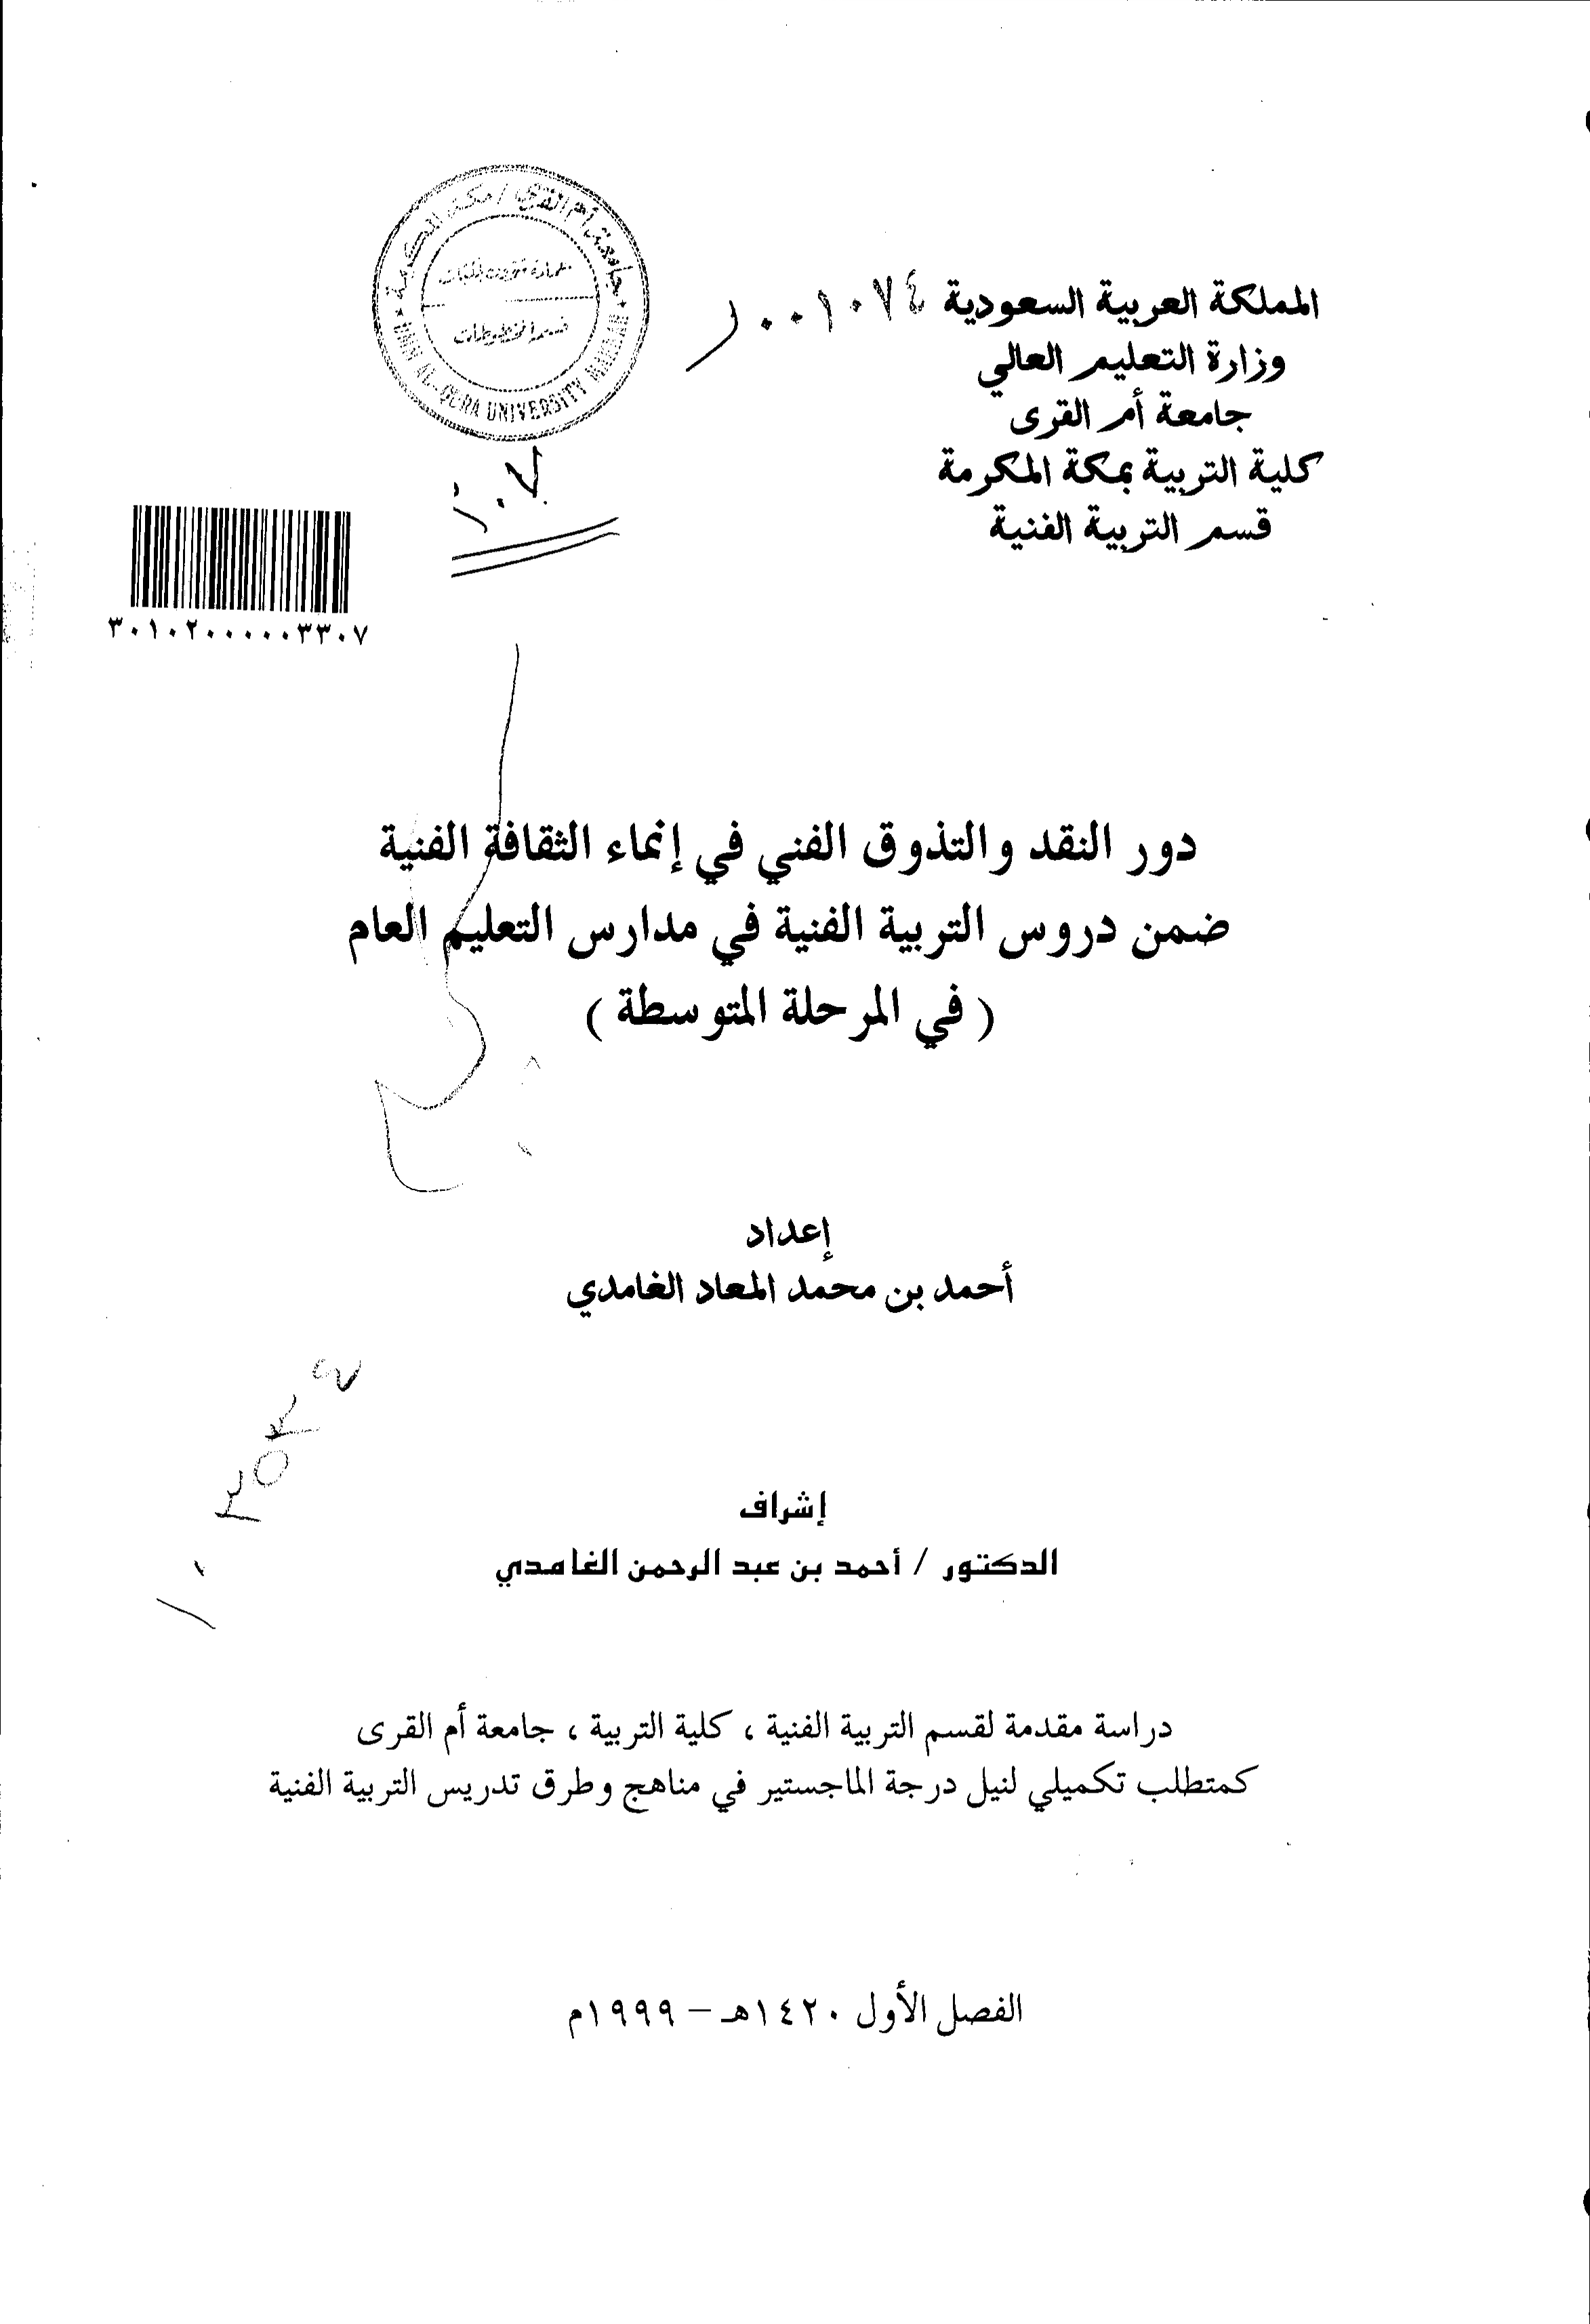 المملكة العربية السعودية
وزارة التعليم العالي
جامعة أم القرى
كلية التربية بمكة المكرمة
قسم التربية الفنية
جامعة أم القرى / مكة المكرمة
قسم المخطوطات
UMM AL-QURA UNIVERSITY MAKKAH
٣٠١٠٢٠٠٠٠٠٣٣٠٧
دور النقد والتذوق الفني في إنماء الثقافة الفنية
ضمن دروس التربية الفنية في مدارس التعليم العام
( في المرحلة المتوسطة )
إعداد
أحمد بن محمد المعاد الغامدي
إشراف
الدكتور / أحمد بن عبد الرحمن الغامدي
دراسة مقدمة لقسم التربية الفنية ، كلية التربية ، جامعة أم القرى
كمتطلب تكميلي لنيل درجة الماجستير في مناهج وطرق تدريس التربية الفنية
الفصل الأول ١٤٢٠هـ – ١٩٩٩م